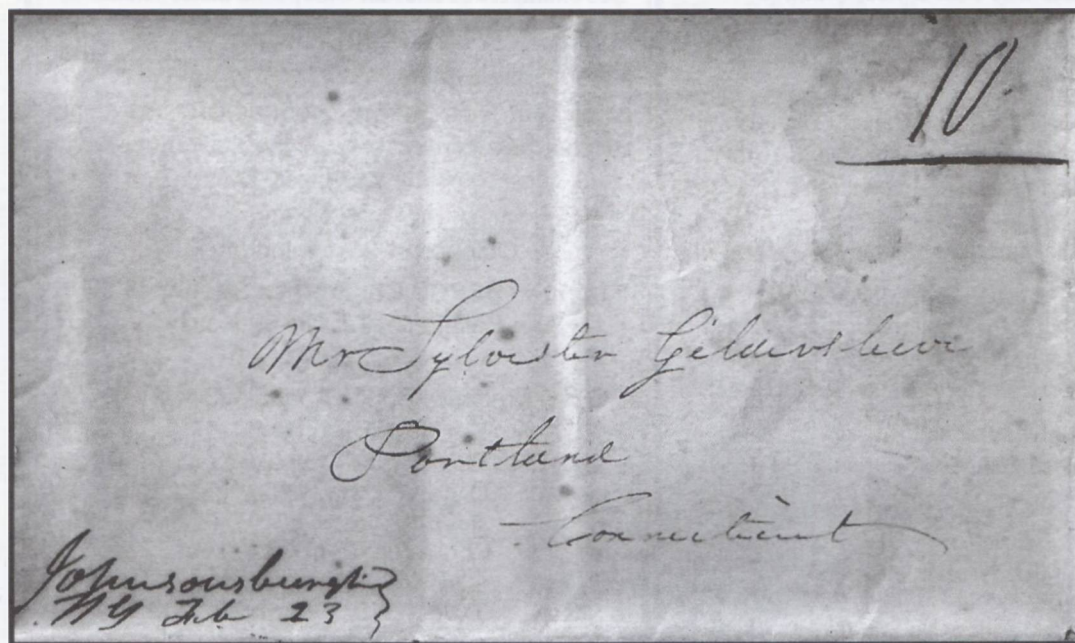 10
Mr Sylvester Gildersleeve
Portland
Connecticut
Johnsonsburgh
NY Feb 23